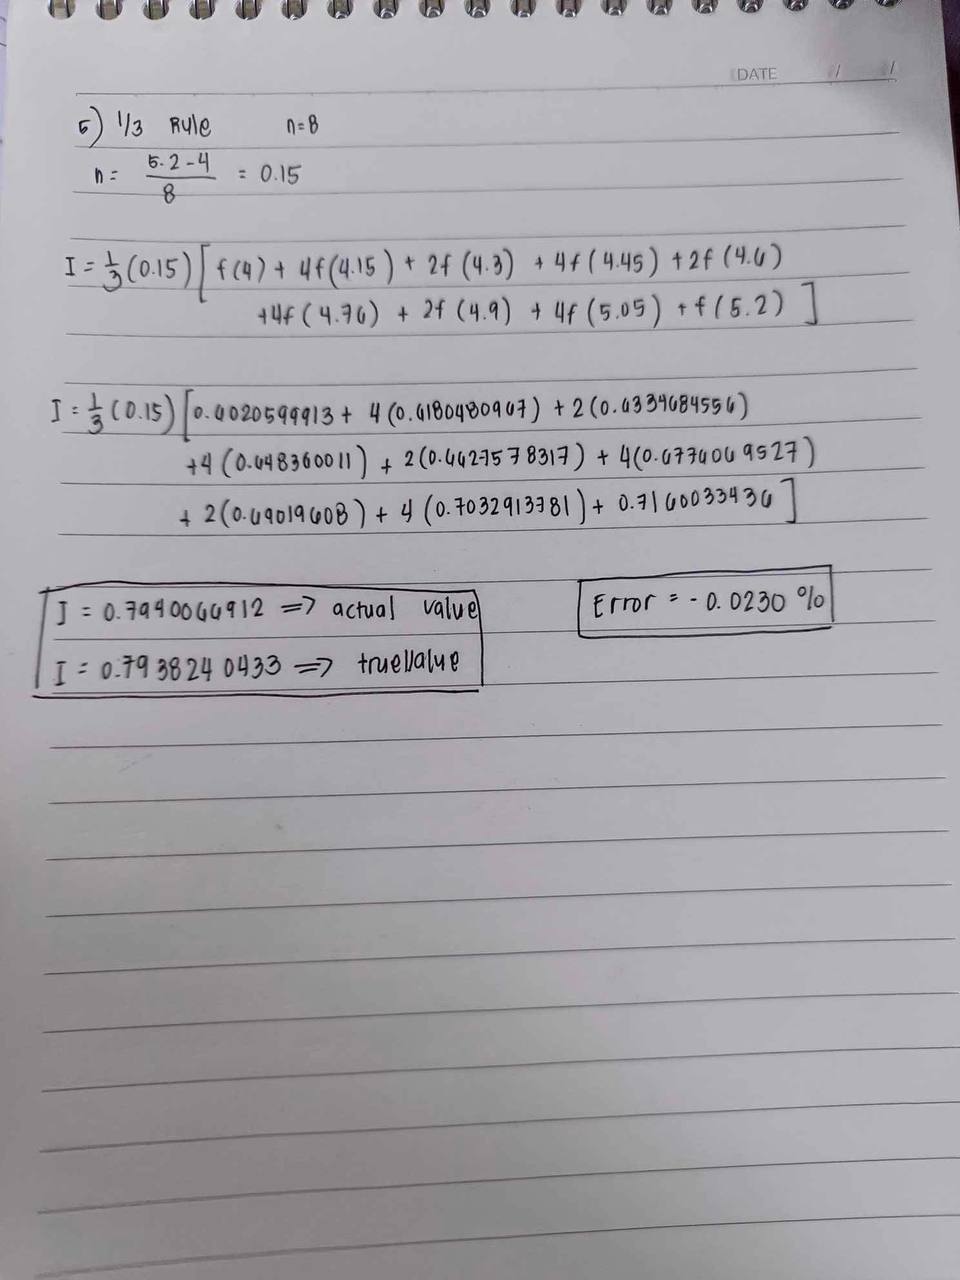 DATE / /
5) 1/3 Rule n=8
n = 5.2-4 / 8 = 0.15
I = 1/3 (0.15) [ f(4) + 4f(4.15) + 2f(4.3) + 4f(4.45) + 2f(4.6)
+4f(4.76) + 2f(4.9) + 4f(5.05) + f(5.2) ]
I = 1/3 (0.15) [0.6020599913 + 4(0.6180480967) + 2(0.6334684556)
+4(0.648360011) + 2(0.6627578317) + 4(0.6776069527)
+ 2(0.69019608) + 4(0.7032913781) + 0.7160033436]
I = 0.7940066912 => actual value
I = 0.7938240433 => true value
Error = -0.0230 %